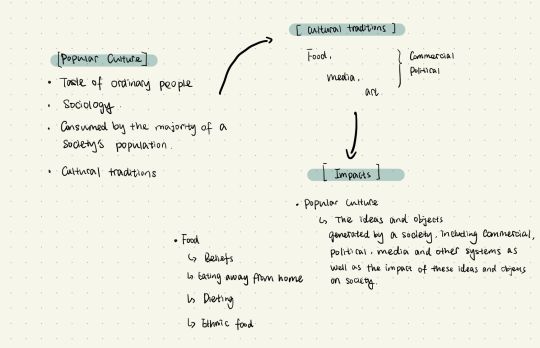 [Popular Culture]
• Taste of ordinary people
• Sociology.
• Consumed by the majority of a
society's population.
• Cultural traditions
[Cultural traditions]
Food,
media,
art
Commercial
Political
[Impacts]
• Popular culture
↳ The ideas and objects
generated by a society, including commercial,
political, media and other systems as
well as the impact of these ideas and objects
on society.
• Food
↳ Beliefs
↳ Eating away from home
↳ Dieting
↳ Ethnic food